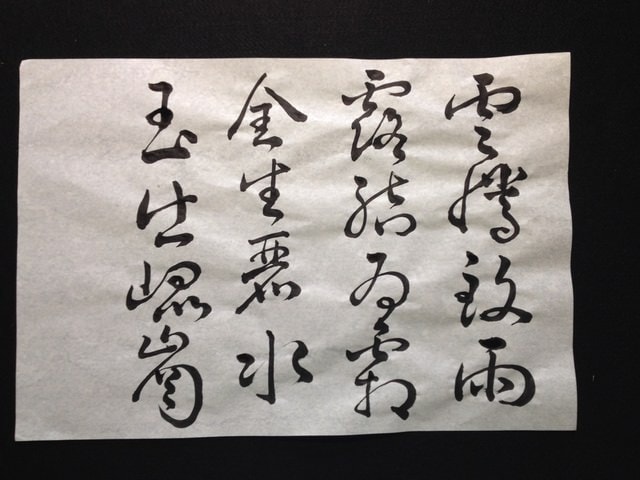 雲騰致雨
露結為霜
金生麗水
玉出崐崗